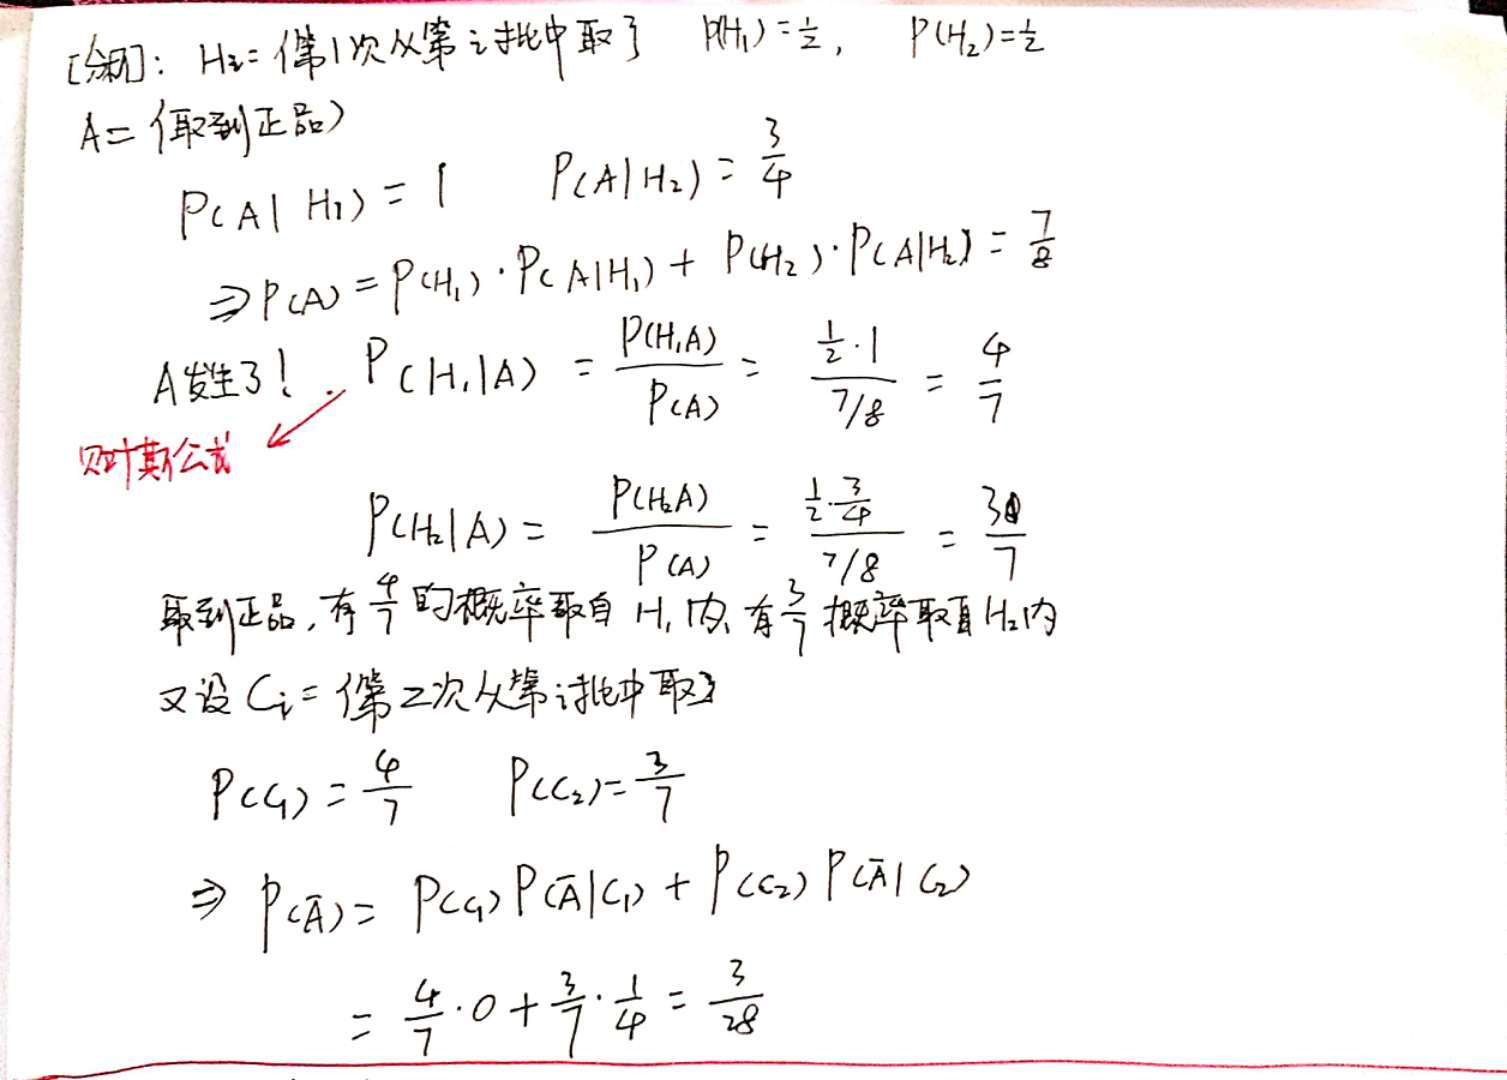 [分析]: Hi={第1次从第i批中取} P(H₁)=1/2, P(H₂)=1/2
A={取到正品}
P(A|H₁)=1 P(A|H₂)=3/4
⇒P(A)=P(H₁)·P(A|H₁)+P(H₂)·P(A|H₂)=7/8
A发生了! P(H₁|A)=P(H₁A)/P(A)=(1/2·1)/(7/8)=4/7
贝叶斯公式
P(H₂|A)=P(H₂A)/P(A)=(1/2·3/4)/(7/8)=3/7
取到正品,有4/7的概率取自H₁内,有3/7概率取自H₂内
又设Ci={第2次从第i批中取}
P(C₁)=4/7 P(C₂)=3/7
⇒P(Ā)=P(C₁)P(Ā|C₁)+P(C₂)P(Ā|C₂)
=4/7·0+3/7·1/4=3/28